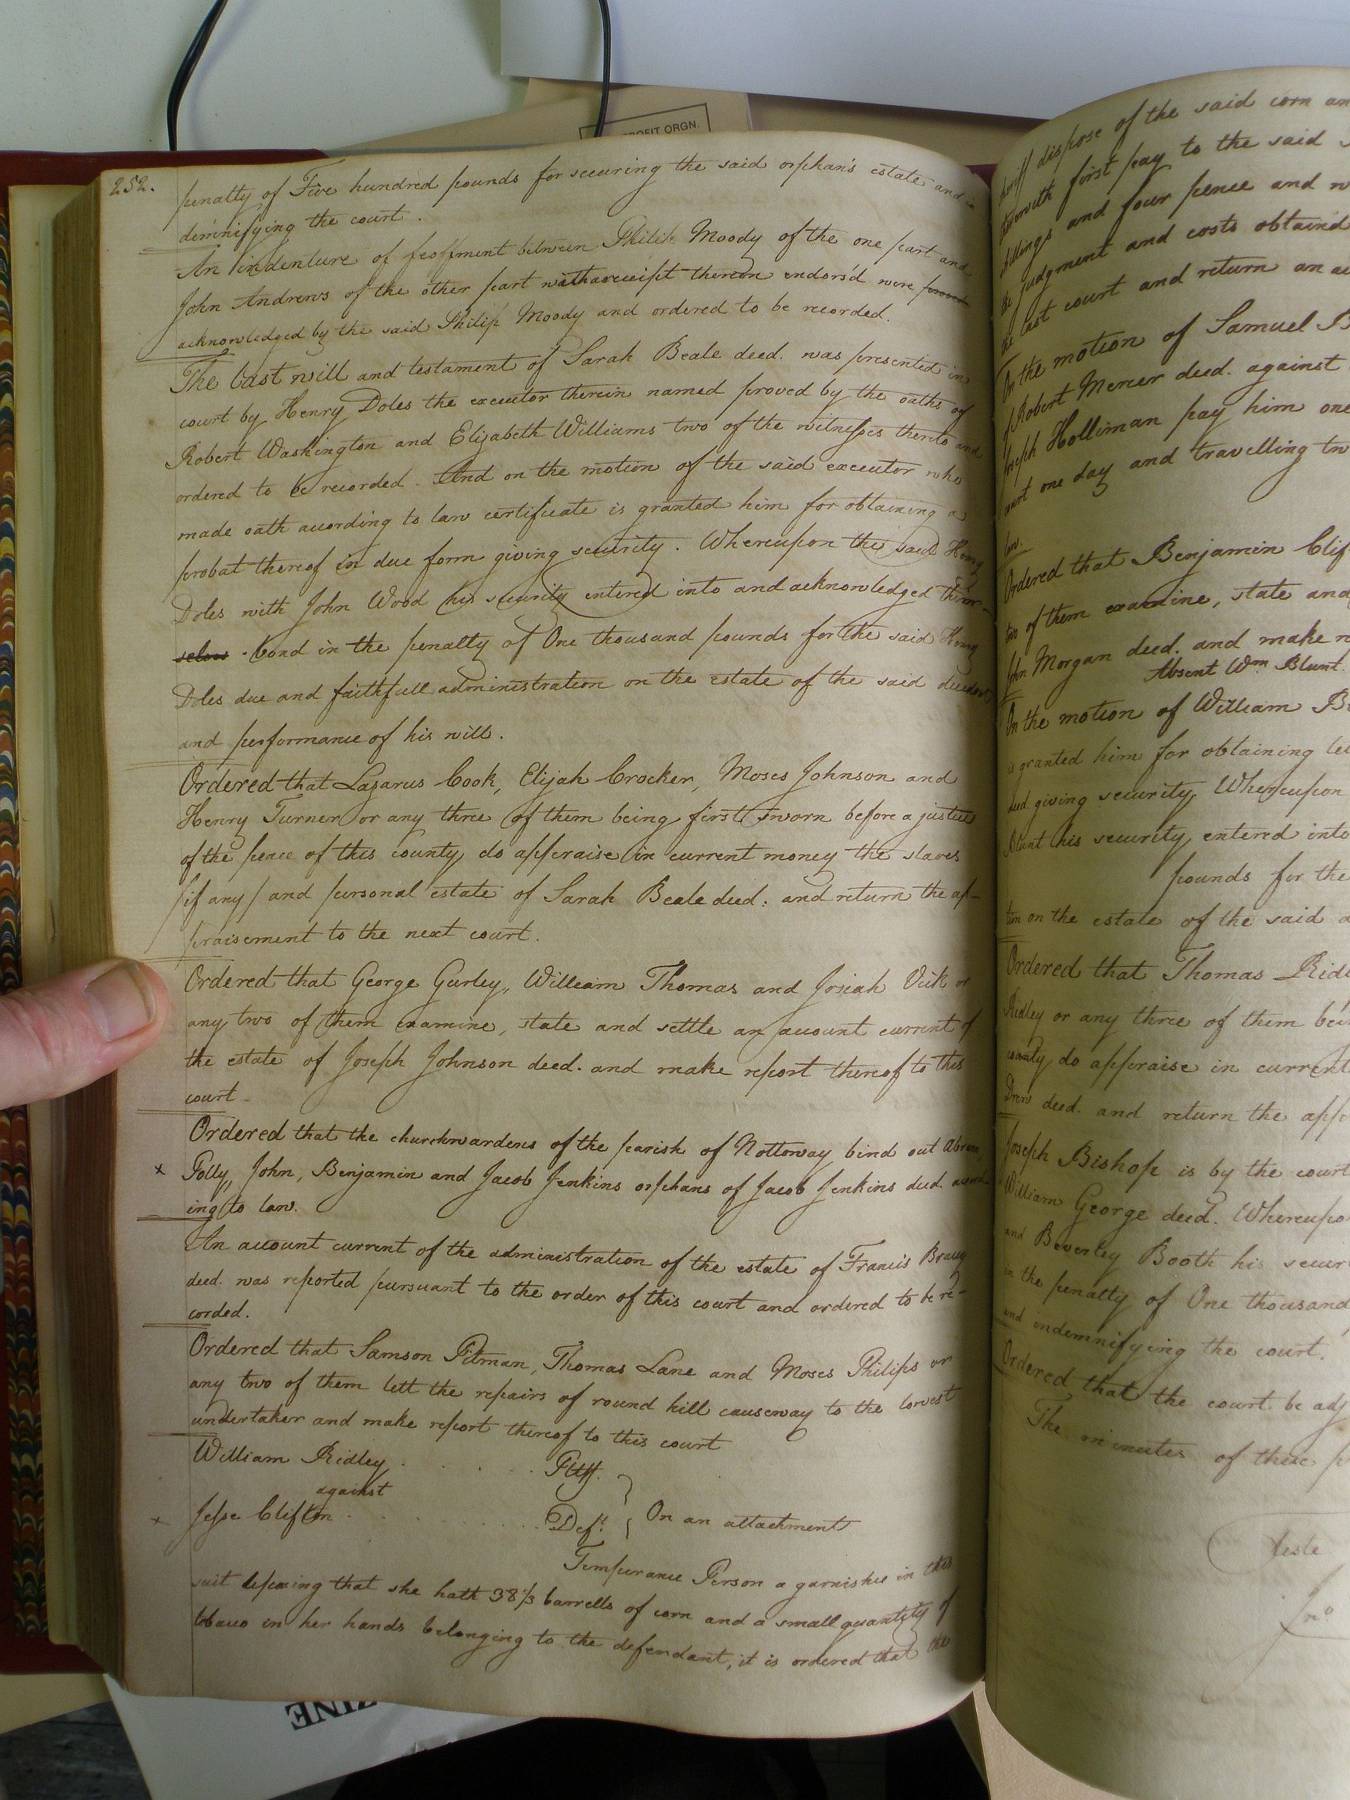 PROFIT ORGN.
252.
penalty of Five hundred pounds for securing the said orphan's estate and in
demnifying the court.
An indenture of feoffment between Philip Moody of the one part and
John Andrews of the other part with a receipt thereon endors'd were
acknowledged by the said Philip Moody and ordered to be recorded.
The last will and testament of Sarah Beale decd. was presented in
court by Henry Doles the executor therein named proved by the oaths of
Robert Washington and Elizabeth Williams two of the witnesses thereto and
ordered to be recorded. And on the motion of the said executor who
made oath according to law certificate is granted him for obtaining a
probat thereof in due form giving security. Whereupon the said Henry
Doles with John Wood his security entered into and acknowledged their
selves bond in the penalty of One thousand pounds for the said Henry
Doles due and faithfull administration on the estate of the said decedent
and performance of his will.
Ordered that Lazarus Cook, Elijah Crocker, Moses Johnson and
Henry Turner or any three of them being first sworn before a justice
of the peace of this county do appraise in current money the slaves
/if any/ and personal estate of Sarah Beale decd: and return the ap-
praisement to the next court.
Ordered that George Gurley, William Thomas and Josiah Vick or
any two of them examine, state and settle an account current of
the estate of Joseph Johnson decd. and make report thereof to this
court.
Ordered that the churchwardens of the parish of Nottoway bind out Abram,
x Polly, John, Benjamin and Jacob Jenkins orphans of Jacob Jenkins decd. accord
ing to law.
An account current of the administration of the estate of Francis
decd. was reported pursuant to the order of this court and ordered to be re-
corded.
Ordered that Samson Pitman, Thomas Lane and Moses Philips or
any two of them lett the repairs of round hill causeway to the lowest
undertaker and make report thereof to this court
William Ridley . . . . Pltff.
against
x Jesse Clifton . . . . Deft. } On an attachment
Temperance Person a garnishee in this
suit deposing that she hath 38 1/3 barrells of corn and a small quantity of
tobacco in her hands belonging to the defendant, it is ordered that the
ZINE
sheriff dispose of the said corn an
therewith first pay to the said
shillings and four pence and
the judgment and costs obtaind
the last court and return an
On the motion of Samuel B
of Robert Mercer decd. against
Joseph Holliman pay him one
court one day and travelling tw
law.
Ordered that Benjamin Clif
two of them examine, state and
John Morgan decd. and make
Absent Wm. Blunt.
On the motion of William B
is granted him for obtaining let
decd giving security, Whereupon
Blunt his security, entered into
pounds for the
tion on the estate of the said
Ordered that Thomas Ridl
Ridley or any three of them bei
county, do appraise in current
Drew decd. and return the app
Joseph Bishop is by the court
William George decd. Whereupon
and Beverley Booth his secur
in the penalty of One thousand
and indemnifying the court.
Ordered that the court be adj
The minutes of these p
Teste
Jno